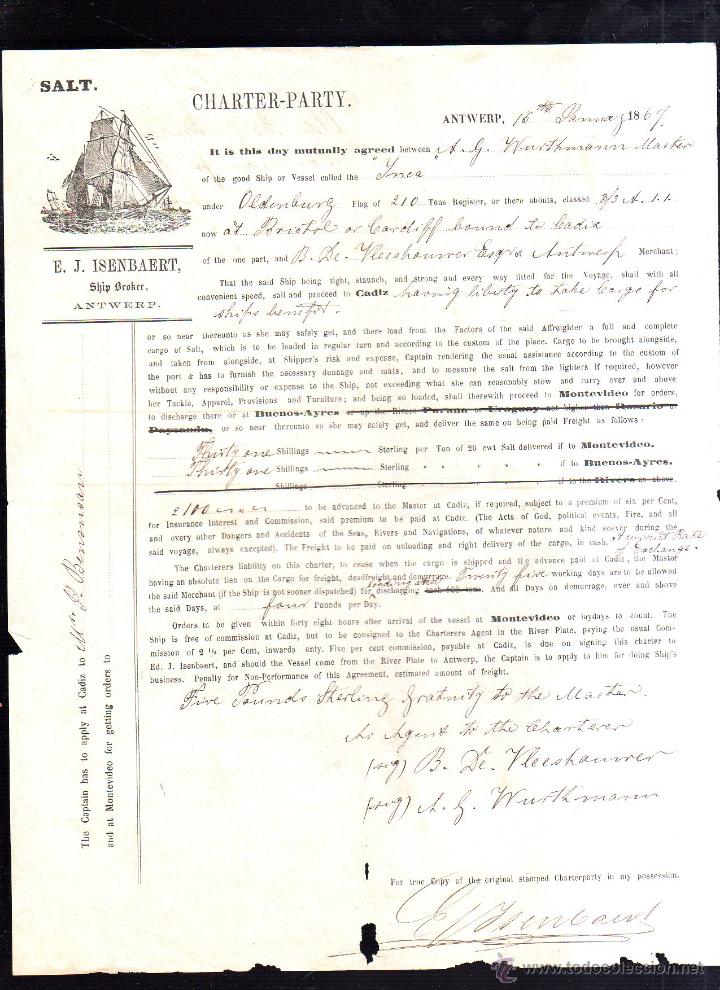 SALT.
CHARTER-PARTY.
ANTWERP, 15th January 1867.
It is this day mutually agreed between A. G. Wurthmann Master
of the good Ship or Vessel called the "Inca"
under Oldenburg Flag of 210 Tons Register, or there abouts, classed 3/3 A. 1. 1.
now at Bristol or Cardiff bound to Cadiz
of the one part, and B. De Vleeshouwer Esqr Antwerp Merchant;
E. J. ISENBAERT,
Ship Broker,
ANTWERP.
That the said Ship being tight, staunch, and strong and every way fitted for the Voyage, shall with all
convenient speed, sail and proceed to Cadiz having liberty to take Cargo for
ships benefit.
or so near thereunto as she may safely get, and there load from the Factors of the said Affreighter a full and complete
cargo of Salt, which is to be loaded in regular turn and according to the custom of the place. Cargo to be brought alongside,
and taken from alongside, at Shipper's risk and expense, Captain rendering the usual assistance according to the custom of
the port & has to furnish the necessary dunnage and mats, and to measure the salt from the lighters if required, however
without any responsibility or expense to the Ship, not exceeding what she can reasonably stow and carry over and above
her Tackle, Apparel, Provisions and Furniture; and being so loaded, shall therewith proceed to Montevideo for orders,
to discharge there or at Buenos-Ayres or up the Rivers Parana or Uruguay not higher than Rosario or
Paysandu, or so near thereunto so she may safely get, and deliver the same on being paid Freight as follows:
Thirty one Shillings Sterling per Ton of 20 cwt Salt delivered if to Montevideo.
Thirty one Shillings Sterling " " " " " if to Buenos-Ayres.
Shillings Sterling if to the Rivers as above.
£100 to be advanced to the Master at Cadiz, if required, subject to a premium of six per Cent,
for Insurance Interest and Commission, said premium to be paid at Cadiz. (The Acts of God, political events, Fire, and all
and every other Dangers and Accidents of the Seas, Rivers and Navigations, of whatever nature and kind soever during the
said voyage, always excepted). The Freight to be paid on unloading and right delivery of the cargo, in cash, at current Rate
of Exchange.
The Charterers liability on this charter, to cease when the cargo is shipped and the advance paid at Cadiz, the Master
having an absolute lien on the Cargo for freight, deadfreight and demurrage. Twenty five working days are to be allowed
loading and
the said Merchant (if the Ship is not sooner dispatched) for discharging And all Days on demurrage, over and above
the said Days, at four Pounds per Day.
Orders to be given within forty eight hours after arrival of the vessel at Montevideo or laydays to count. The
Ship is free of commission at Cadiz, but to be consigned to the Charterers Agent in the River Plate, paying the usual Com-
mission of 2 ½ per Cent, inwards only. Five per cent commission, payable at Cadiz, is due on signing this charter to
Ed. J. Isenbaert, and should the Vessel come from the River Plate to Antwerp, the Captain is to apply to him for doing Ship's
business. Penalty for Non-Performance of this Agreement, estimated amount of freight.
Five Pounds Sterling gratuity to the Master.
As Agent to the Charterer
(sig) B. De Vleeshouwer
(sig) A. G. Wurthmann
For true Copy of the original stamped Charterparty in my possession.
E J Isenbaert
The Captain has to apply at Cadiz to
and at Montevideo for getting orders to
www.todocoleccion.net